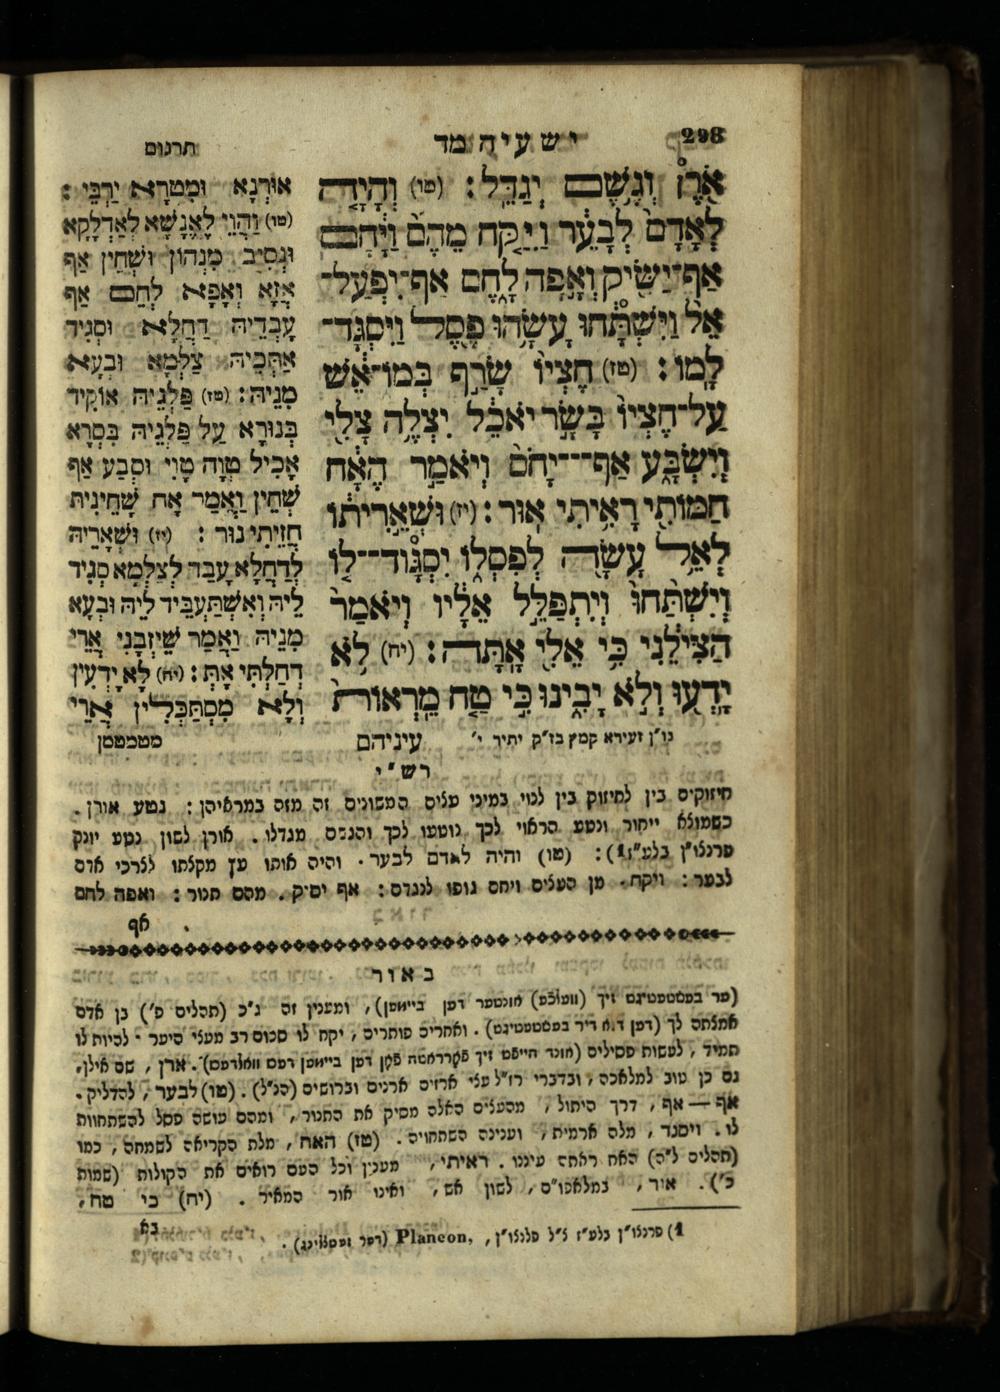 298
ישעיה מד
תרגום
אֹ֖רֶז וְגֶ֥שֶׁם יְגַדֵּֽל: (טו) וְהָיָ֤ה
לְאָדָם֙ לְבָעֵ֔ר וַיִּקַּ֤ח מֵהֶם֙ וַיָּ֔חָם
אַף־יַשִּׂ֖יק וְאָ֣פָה לָ֑חֶם אַף־יִפְעַל־
אֵל֙ וַיִּשְׁתָּ֔חוּ עָשָׂ֥הוּ פֶ֖סֶל וַיִּסְגָּד־
לָֽמוֹ: (טז) חֶצְיוֹ֙ שָׂרַ֣ף בְּמוֹ־אֵ֔שׁ
עַל־חֶצְיוֹ֙ בָּשָׂ֣ר יֹאכֵ֔ל יִצְלֶ֥ה צָלִ֖י
וְיִשְׂבָּ֑ע אַף־יָחֹם֙ וְיֹאמַ֣ר הֶאָ֔ח
חַמּוֹתִ֖י רָאִ֥יתִי אֽוּר: (יז) וּשְׁאֵ֣רִית֔וֹ
לְאֵ֥ל עָשָׂ֖ה לְפִסְל֑וֹ יִסְגָּוד־ל֤וֹ
וְיִשְׁתַּ֙חוּ֙ וְיִתְפַּלֵּ֣ל אֵלָ֔יו וְיֹאמַר֙
הַצִּילֵ֔נִי כִּ֥י אֵלִ֖י אָֽתָּה: (יח) לֹ֥א
יָדְע֖וּ וְלֹ֣א יָבִ֑ינוּ כִּ֣י טַ֤ח מֵֽרְאוֹת֙
נו"ן זעירא קמץ בז"ק יתיר י'
עיניהם
אוּרְנָא וּמִטְרָא יַרְבֵּי:
(טו) וַהֲוֵי לֶאֱנָשָׁא לְאַדְלָקָא
וּנְסִיב מִנְהוֹן וּשְׁחֵין אַף
אֲזָא וְאָפָא לְחֵם אַף
עָבְדֵיהּ דַחֲלָא וּסְגִיד
אַתְּכֵיהּ צַלְמָא וּבְעָא
מִנֵיהּ: (טז) פַּלְגֵיהּ אוֹקִיד
בְּנוּרָא עַל פַּלְגֵיהּ בִּסְרָא
אָכִיל טְוָה טָוִי וּסְבַע אַף
שְׁחֵין וַאֲמַר אָח שָׁחֵינִית
חֲזֵיתִי נוּר: (יז) וּשְׁאָרֵיהּ
לְדַחֲלָא עֲבַד לְצַלְמָא סְגִיד
לֵיהּ וְאִשְׁתַּעְבֵּיד לֵיהּ וּבְעָא
מִנֵיהּ וַאֲמַר שֵׁיזְבָנִי אֲרֵי
דַחַלְתִּי אָתְּ: (יח) לָא יָדְעִין
וְלָא מִסְתַּכְּלִין אֲרֵי
מטמטמן
רש"י
חיזוקים בין לחיזוק בין לנוי במיני עלים המשונים זה מזה במראיהן: נטע אורן.
כשמולא ייחור ונטע הראוי לכך נוטעו לכך והגשם מגדלו. אורן לשון נטע יונק
פרנלו"ן בלע"ז1): (טו) והיה לאדם לבער. והיה אותו עץ מקלתו ללרכי אדם
לבער: ויקח. מן העלים ויחם גופו לנגדם: אף ישיק. מהם תנור: ואפה לחם
אף
באור
(ער בעסטטיגט זיך (וועלכע) אונטער דען ביימען), ומענין זה ג"כ (תהלים פ') בן אדם
אמלתה לך (דען דוא דיר בעסטטיגט). ואחרים פותרים, יקח לו סכום רב מעלי היער. להיות לו
תמיד, לעשות פסילים (אונד הייפט זיך פֿאָררֿאטה פֿאָן דען ביימען דעס וואלדעס). ארן, שם אילן,
גם כן טוב למלאכה, ובדברי רז"ל עלי ארזים ארנים וברושים (הנ"ל). (טו) לבער, להדליק.
אף — אף, דרך היתול, מהעלים האלה מסיק את התנור, ומהם עושה פסל להשתחוות
לו. ויסגד, מלה ארמית, וענינה השתחויה. (טז) האח, מלת הקריאה לשמחה, כמו
(תהלים ל"ה) האח ראתה עיננו. ראיתי, מענין וכל העם רואים את הקולות (שמות
כ'). איר, במלאפו"ם, לשון אש, ואינו אור המאיר. (יח) כי טח,
בא
1) פרנלו"ן בלע"ז ל"ל פלנלו"ן, Plancon, (דער זעטצלינג).